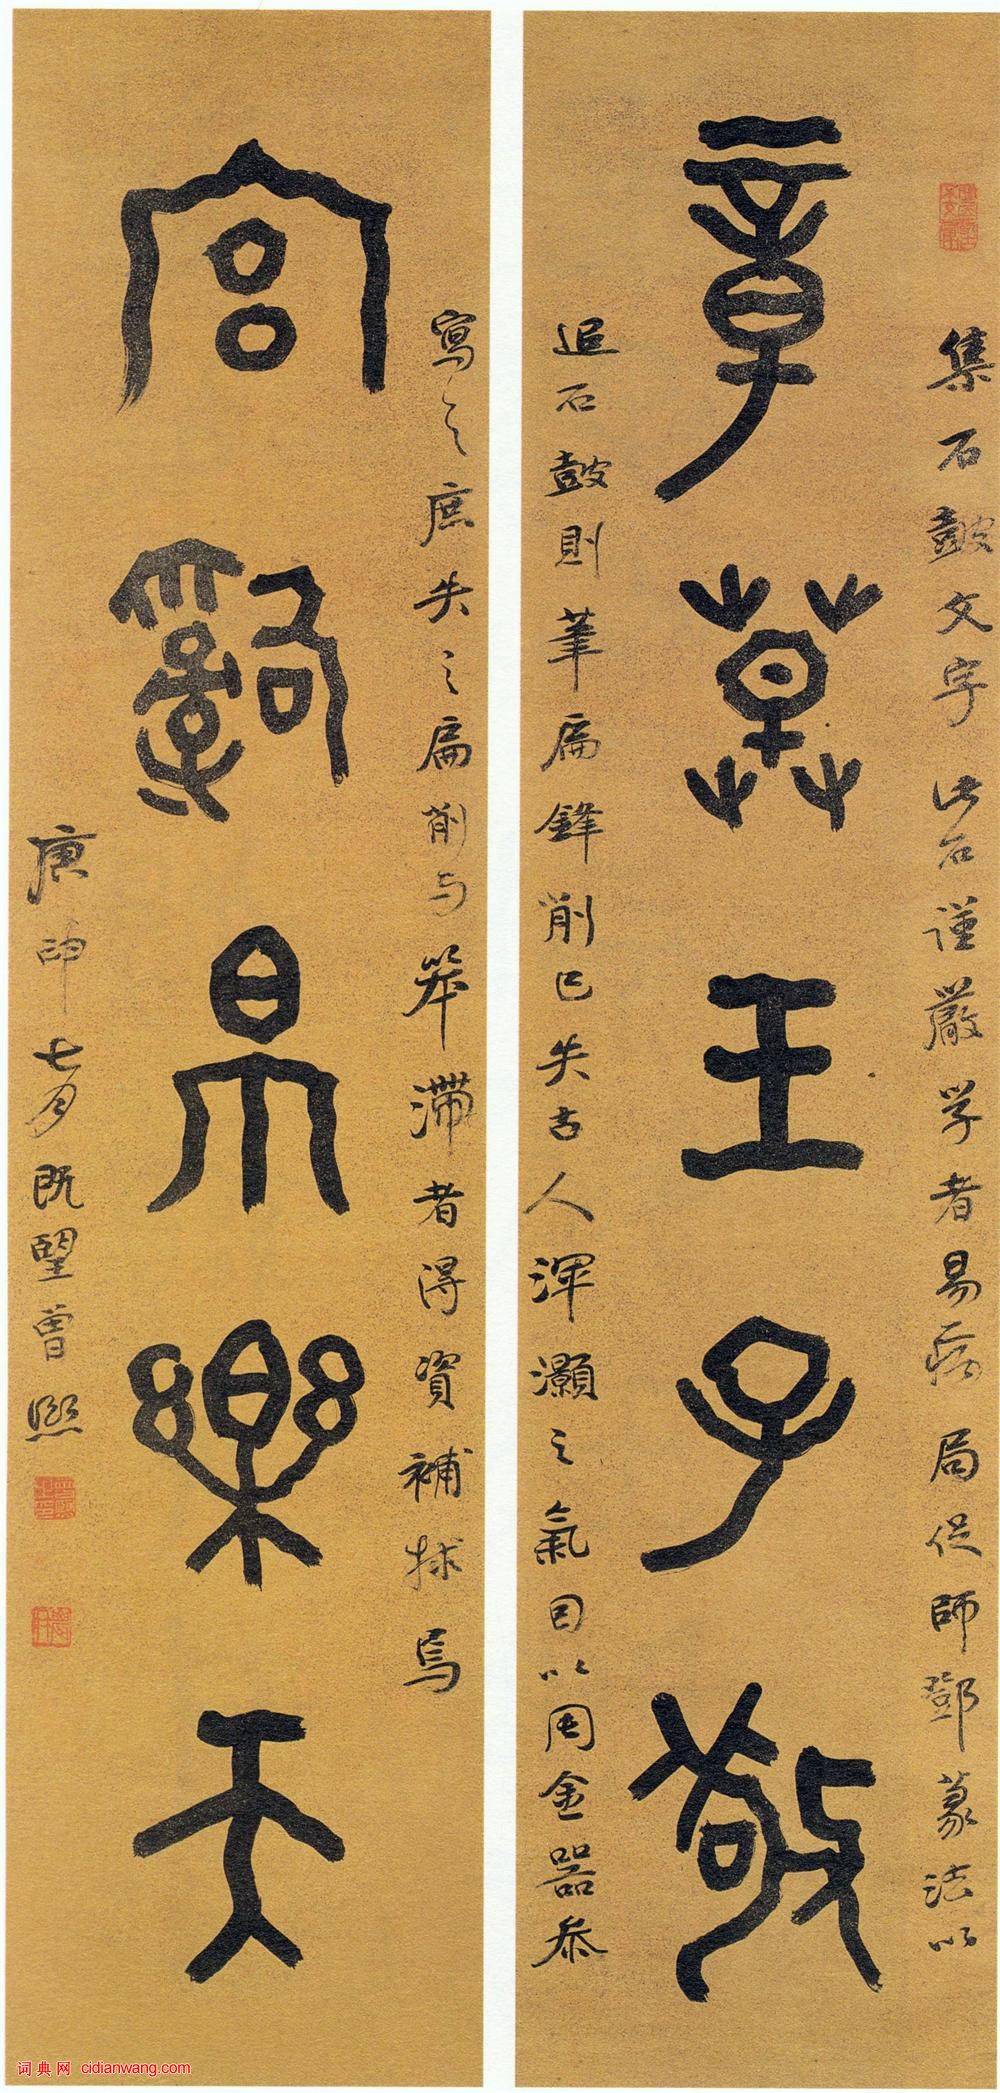 集石鼓文字此石謹嚴学者易病局促師鄧篆法以
章草王子敬
追石鼓則筆扁鋒削已失古人渾灝之氣因以周金器參
寫之庶失之扁削与笨滯者得資補捄焉
宮辭帛樂天
庚申七月既望曾熙
词典网 cidianwang.com